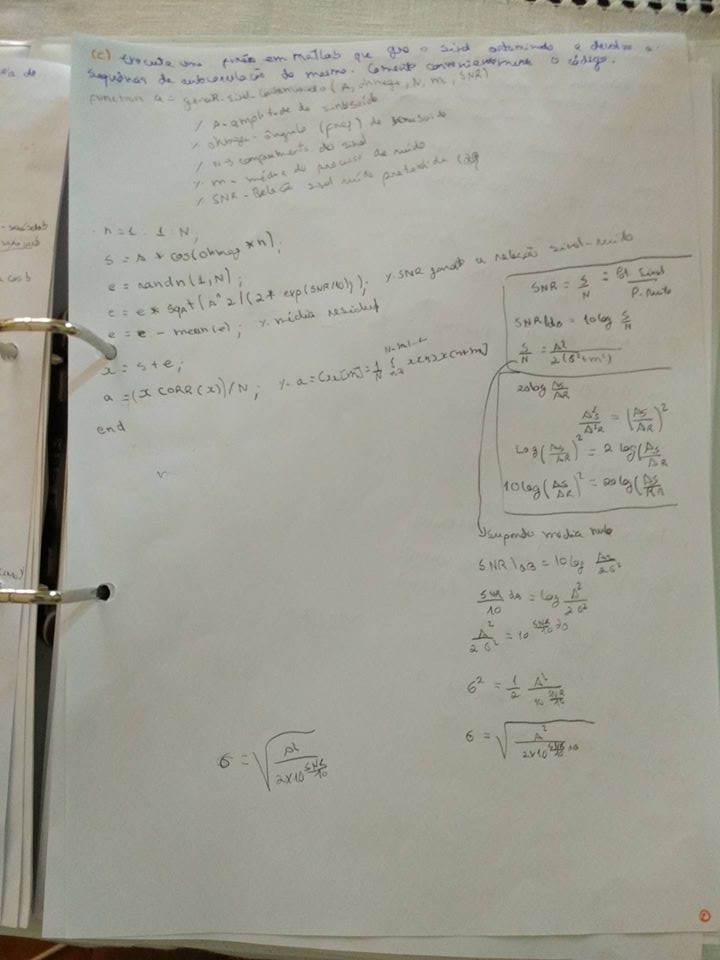 (c) Executa uma função em Matlab que gere o sinal contaminado e devolva a
sequência de autocorrelação do mesmo. Comente convenientemente o código.
function a = gerar_sinal_contaminado (A, ohmega, N, m, SNR)
% A - amplitude de sinusoide
% ohmega - ângulo (freq) de sinusoide
% N → comprimento do sinal
% m - média do processo de ruido
% SNR - Relação sinal ruído pretendida
n = 1 : 1 : N;
s = A * cos(ohmega * n);
e = randn(1, N);
e = e * sqrt(A^2 / (2 * exp(SNR/10))); % SNR a relação sinal-ruido
e = e - mean(e); % média residual
x = s + e;
a = (XCORR(x))/N; % a = Cxx[m] = 1/N Σ x(n) x(n+m)
end
SNR = S/N = Pot. Sinal / P. Ruído
SNR|dB = 10 log S/N
S/N = A² / 2(σ²+m²)
20 log AS/AR
A²S/A²R = (AS/AR)²
Log(AS/AR)² = 2 log(AS/AR)
10 log(AS/AR)² = 20 log(AS/AR)
supondo média nula
SNR|dB = 10 log A²/2σ²
SNR/10 dB = log A²/2σ²
A²/2σ² = 10^(SNR/10)
σ² = 1/2 A²/10^(SNR/10)
σ = √(A²/2×10^(SNR/10))
σ = √(A²/2×10^(SNR/10))